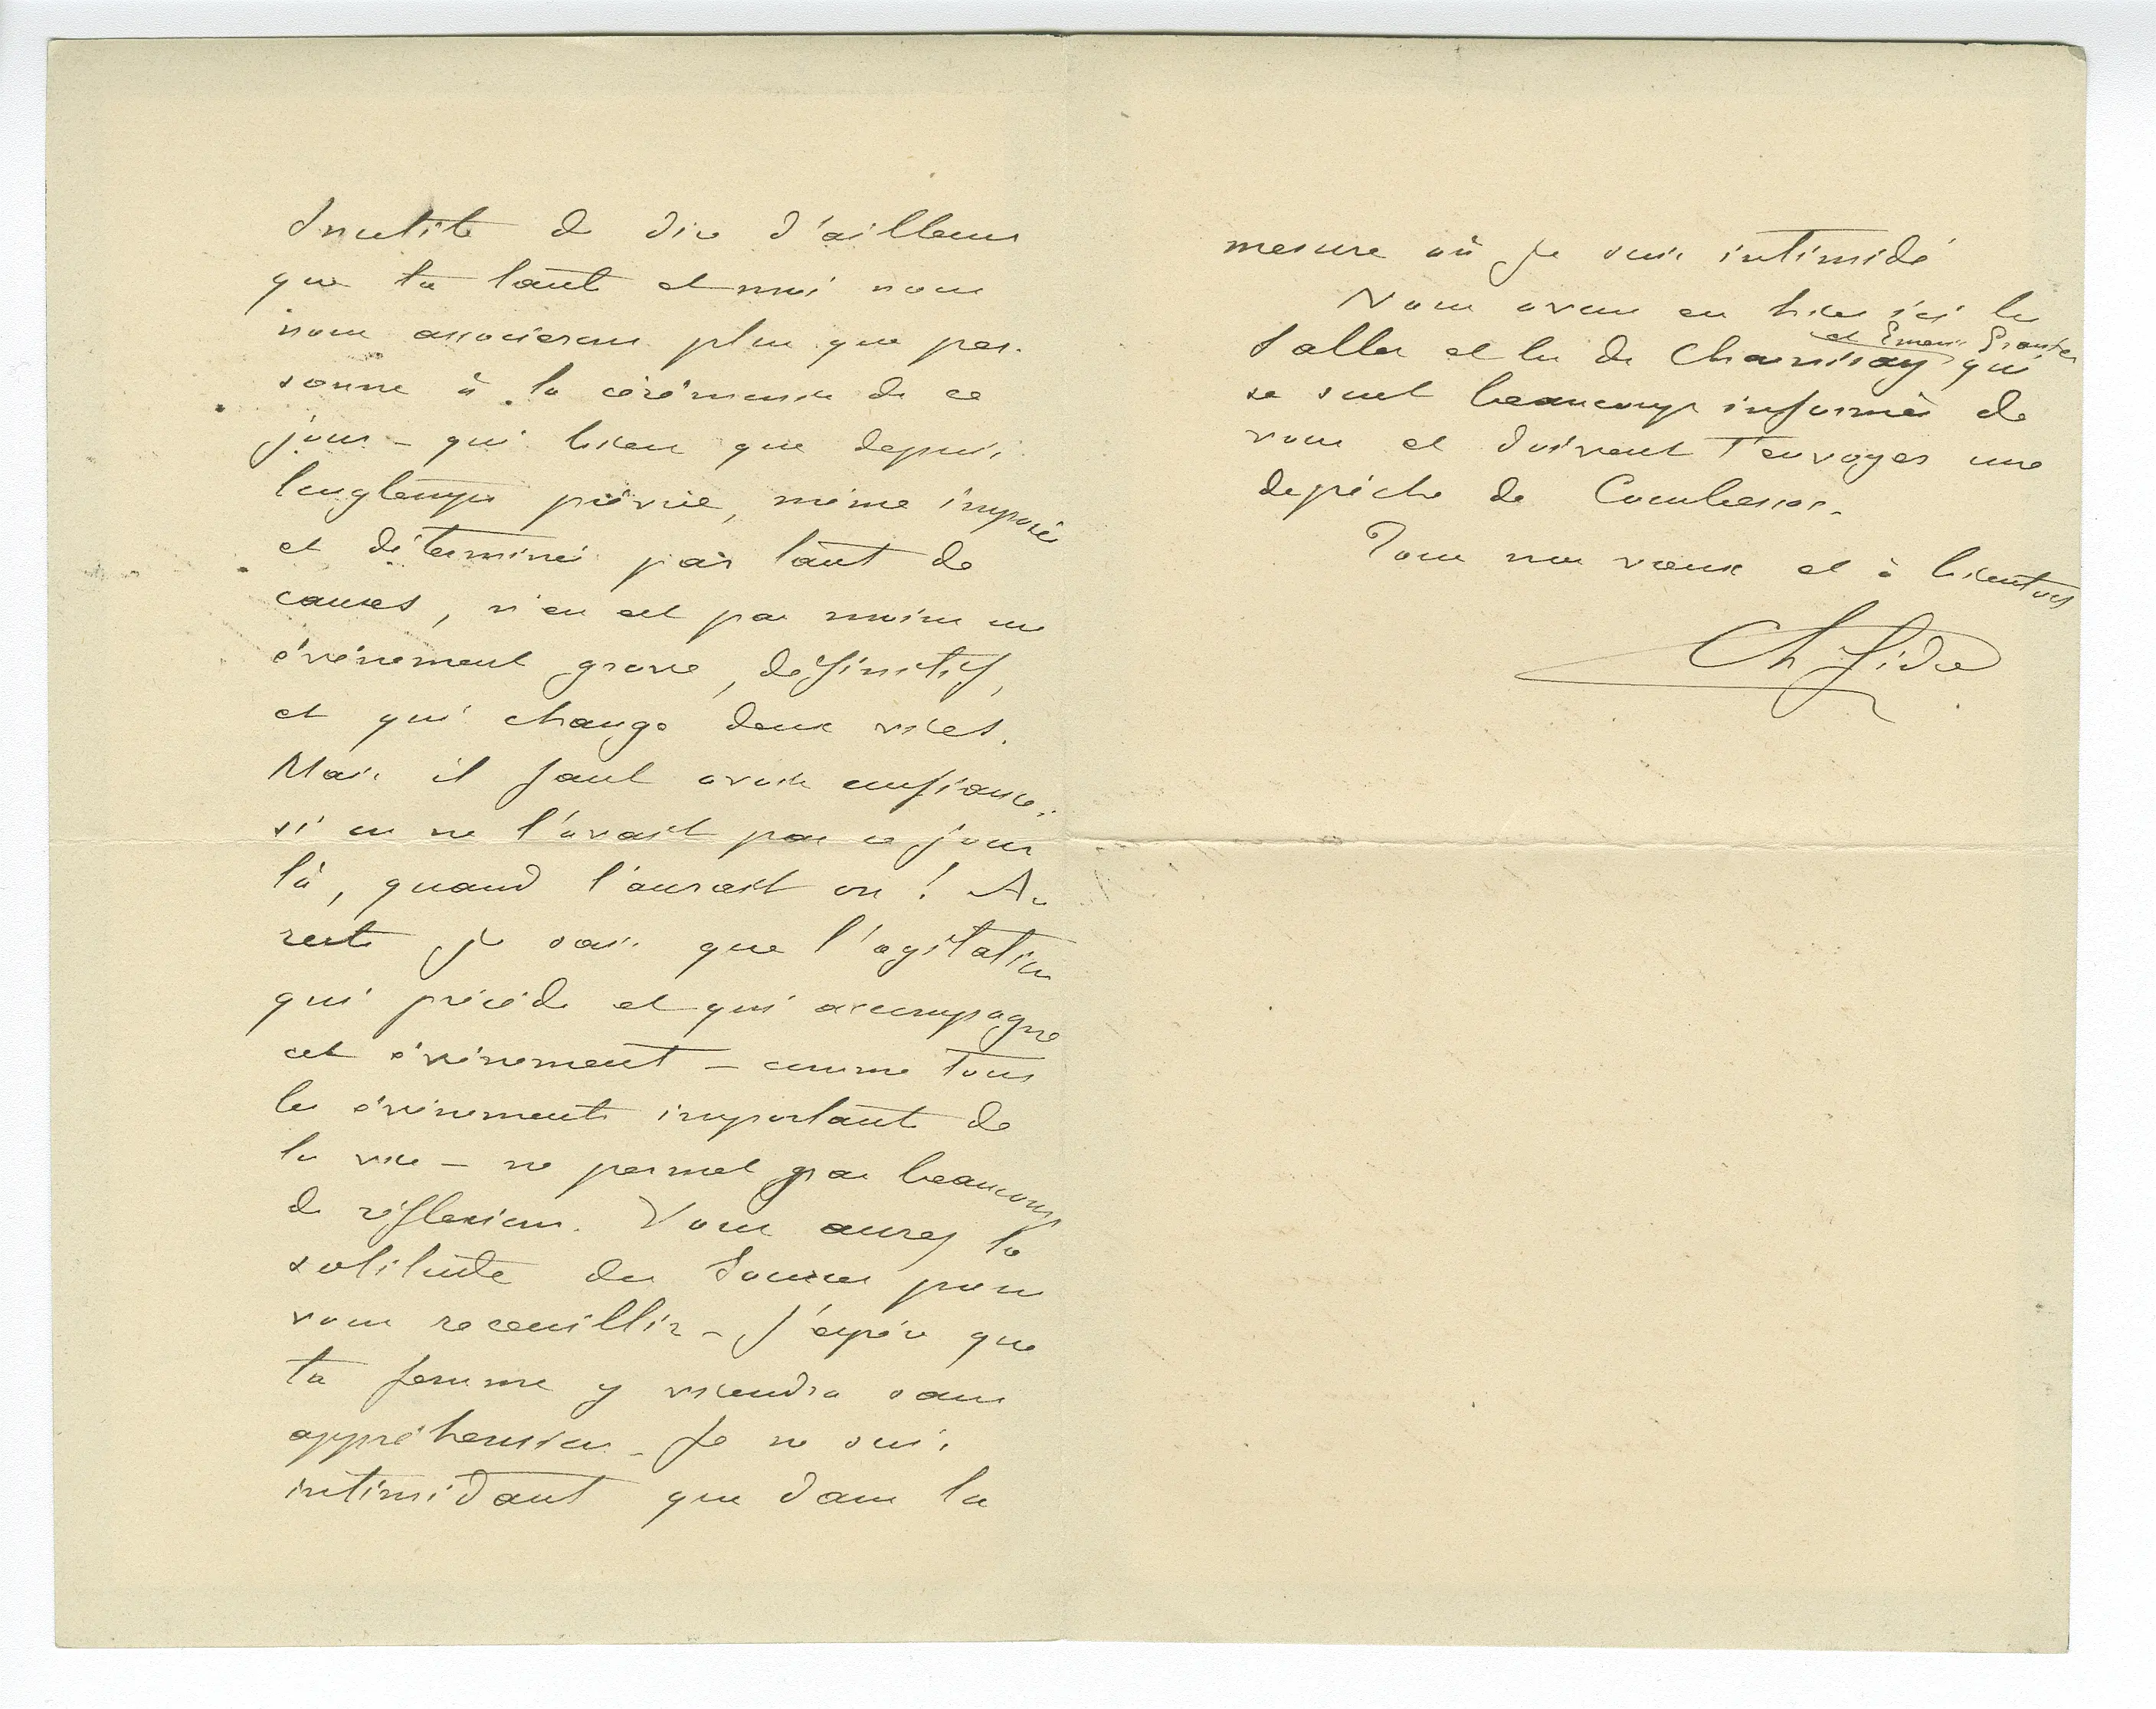 Inutile de dire d'ailleurs
que ta tante et moi nous
nous associerons plus que per-
sonne à la cérémonie de ce
jour – qui bien que depuis
longtemps prévue, même imposée
et déterminée par tant de
causes, n'en est pas moins un
évènement grave, définitif,
et qui change deux vies.
Mais il faut avoir confiance :
si on ne l'avait pas ce jour
là, quand l'aurait on ! Au
reste je sais que l'agitation
qui précède et qui accompagne
cet évènement – comme tous
les évènements importants de
la vie – ne permet pas beaucoup
de réflexions. Vous aurez la
solitude des pour
vous recueillir – J'espère que
ta femme y viendra sans
appréhension – Je ne suis
intimidant que dans la
mesure où je suis intimidé
Nous avons eu hier ici les
et Granier
Salles et les de Charnisay qui
se sont beaucoup informés de
vous et doivent t'envoyer une
depêche de Combesses.
Tous nos vœux et à bientôt
Ch Gide